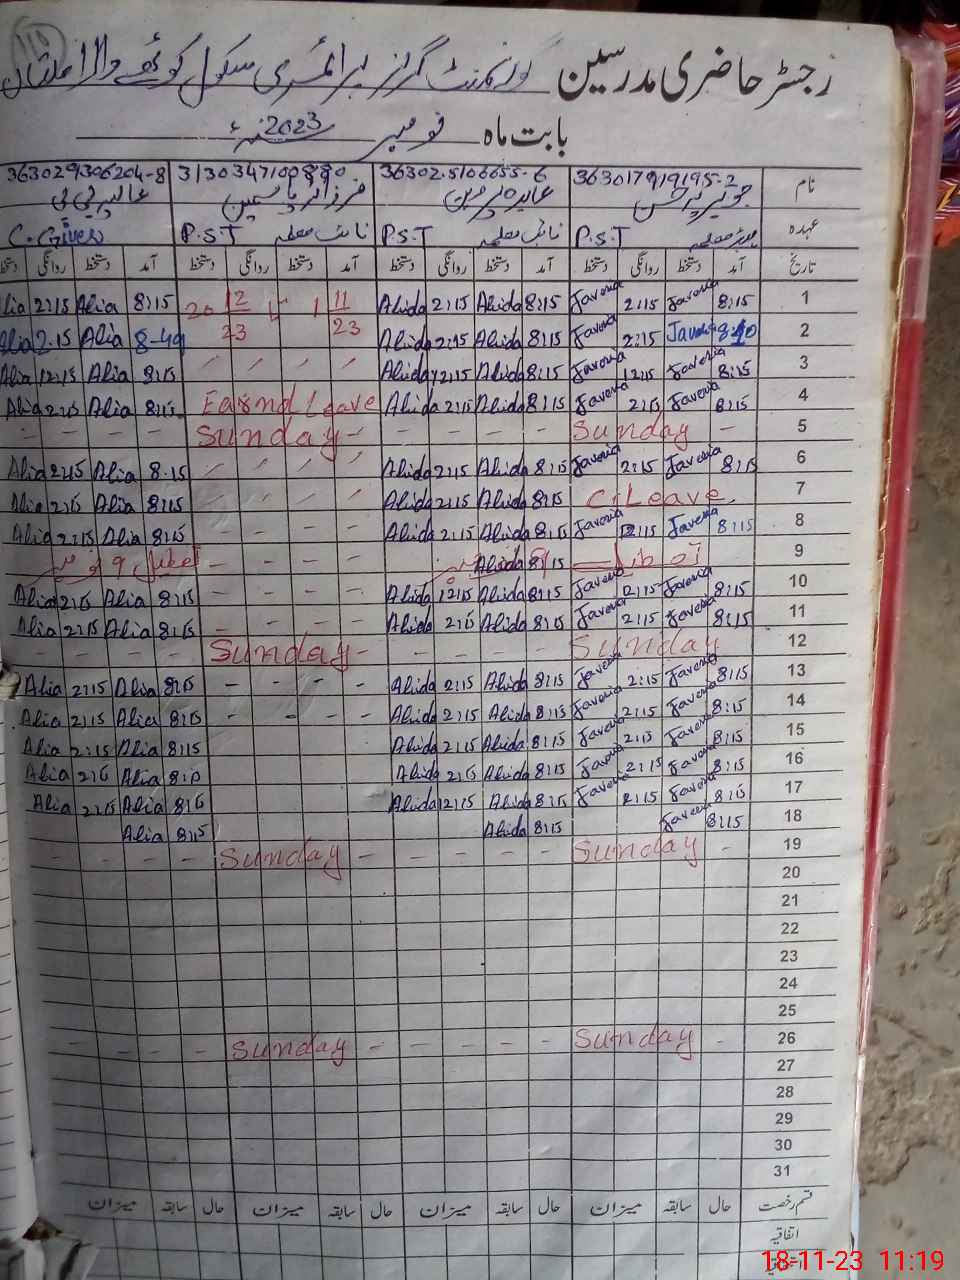 رجسٹر حاضری مدرسین گورنمنٹ گرلز پرائمری سکول کوٹھے والا ملتان
بابت ماہ نومبر 2023ء
نام 363017919195-2 36302-5106655-6 3130347100880 363029306204-8
عابدہ پروین فرزانہ یاسمین عالیہ بی بی
عہدہ P.S.T نائب معلمہ P.S.T نائب معلمہ P.S.T C.Giver
تاریخ آمد دستخط روانگی دستخط آمد دستخط روانگی دستخط آمد دستخط روانگی دستخط آمد دستخط روانگی دستخط
1 8:15 Javeria 2:15 Javeria 8:15 Abida 2:15 Abida 1 11/23 20 12/23 8:15 Alia 2:15 Alia
2 Javeria 2:15 Javeria 8:15 Abida 2:15 Abida Alia 2:15 Alia
3 8:15 Javeria 12:15 Javeria 8:15 Abida 12:15 Abida 8:15 Alia 12:15 Alia
4 8:15 Javeria 2:15 Javeria 8:15 Abida 2:15 Abida Earnd Leave 8:15 Alia 2:15 Alia
5 - Sunday - - - - - Sunday - - - - -
6 8:15 Javeria 2:15 Javeria 8:15 Abida 2:15 Abida 8:15 Alia 2:15 Alia
7 C-Leave 8:15 Abida 2:15 Abida 8:15 Alia 2:15 Alia
8 8:15 Javeria 12:15 Javeria 8:15 Abida 2:15 Abida - - - - 8:15 Alia 2:15 Alia
9 8:15 Abida - - - - 9 نومبر تعطیل
10 8:15 Javeria 2:15 Javeria 8:15 Abida 12:15 Abida - - - - 8:15 Alia 2:15 Alia
11 8:15 Javeria 2:15 Javeria 8:15 Abida 2:15 Abida - - - - 8:15 Alia 2:15 Alia
12 - Sunday - - - - - Sunday - - - - -
13 8:15 Javeria 2:15 Javeria 8:15 Abida 2:15 Abida - - - - 8:15 Alia 2:15 Alia
14 8:15 Javeria 2:15 Javeria 8:15 Abida 2:15 Abida - - - - 8:15 Alia 2:15 Alia
15 8:15 Javeria 2:15 Javeria 8:15 Abida 2:15 Abida 8:15 Alia 2:15 Alia
16 8:15 Javeria 2:15 Javeria 8:15 Abida 2:15 Abida 8:15 Alia 2:15 Alia
17 8:15 Javeria 2:15 Javeria 8:15 Abida 2:15 Abida 8:15 Alia 2:15 Alia
18 8:15 Javeria 8:15 Abida 8:15 Alia
19 - Sunday - - - - - Sunday - - - -
20
21
22
23
24
25
26 - Sunday - - - - - Sunday - - - -
27
28
29
30
31
قسم رخصت حال سابقہ میزان حال سابقہ میزان حال سابقہ میزان حال سابقہ میزان
اتفاقیہ
18-11-23 11:19